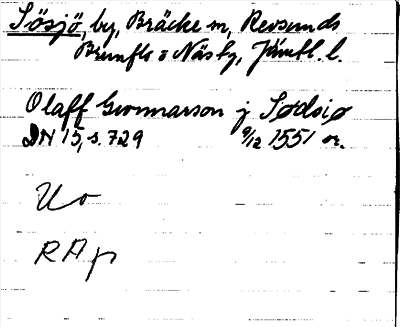 Sösjö, by, Bräcke sn, Revsunds
Brunflo o Näs tg, Jämtl. l.
Olaff Gunnarson j Sødsiø
DN 15, s. 729 9/12 1551 or.
Uo
RAp